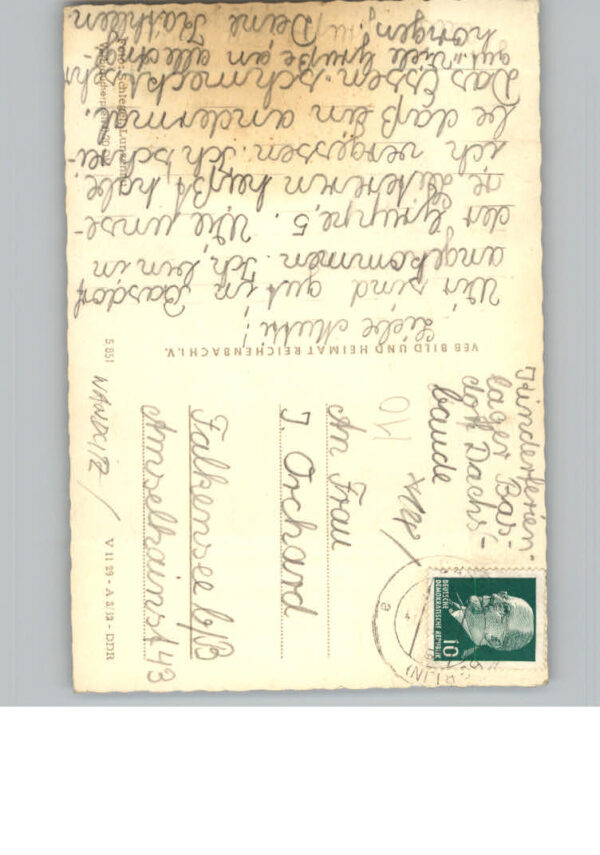 Liebe Mutti!
Wir sind gut in Basdorf
angekommen. Ich bin in
der Gruppe 5. Wie unse-
re Leiterin heißt habe
ich vergessen. Ich schrei-
be daß ein andermal.
Das Essen schmeckt sehr
gut. Viele Grüße an alle
Deine Kathleen
VEB BILD UND HEIMAT REICHENBACH I. V.
5 851
WANDLITZ
V 11 29 - A 3/62 - DDR
Kinderferien-
lager Bas-
dorf Dachs-
baude
An Frau
J. Orchard
Falkensee b/B
Amselhainst 43
DEUTSCHE
DEMOKRATISCHE REPUBLIK
10
a